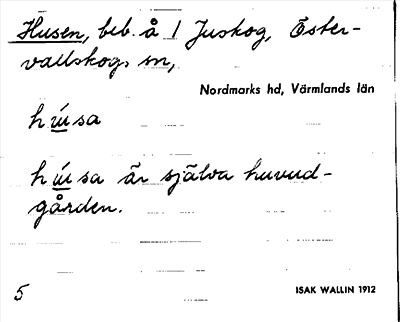 Husen, beb. å 1 Juskog, Öster-
vallskogs sn,
Nordmarks hd, Värmlands län
hú̲sa
hú̲sa är själva huvud-
gården.
5
ISAK WALLIN 1912